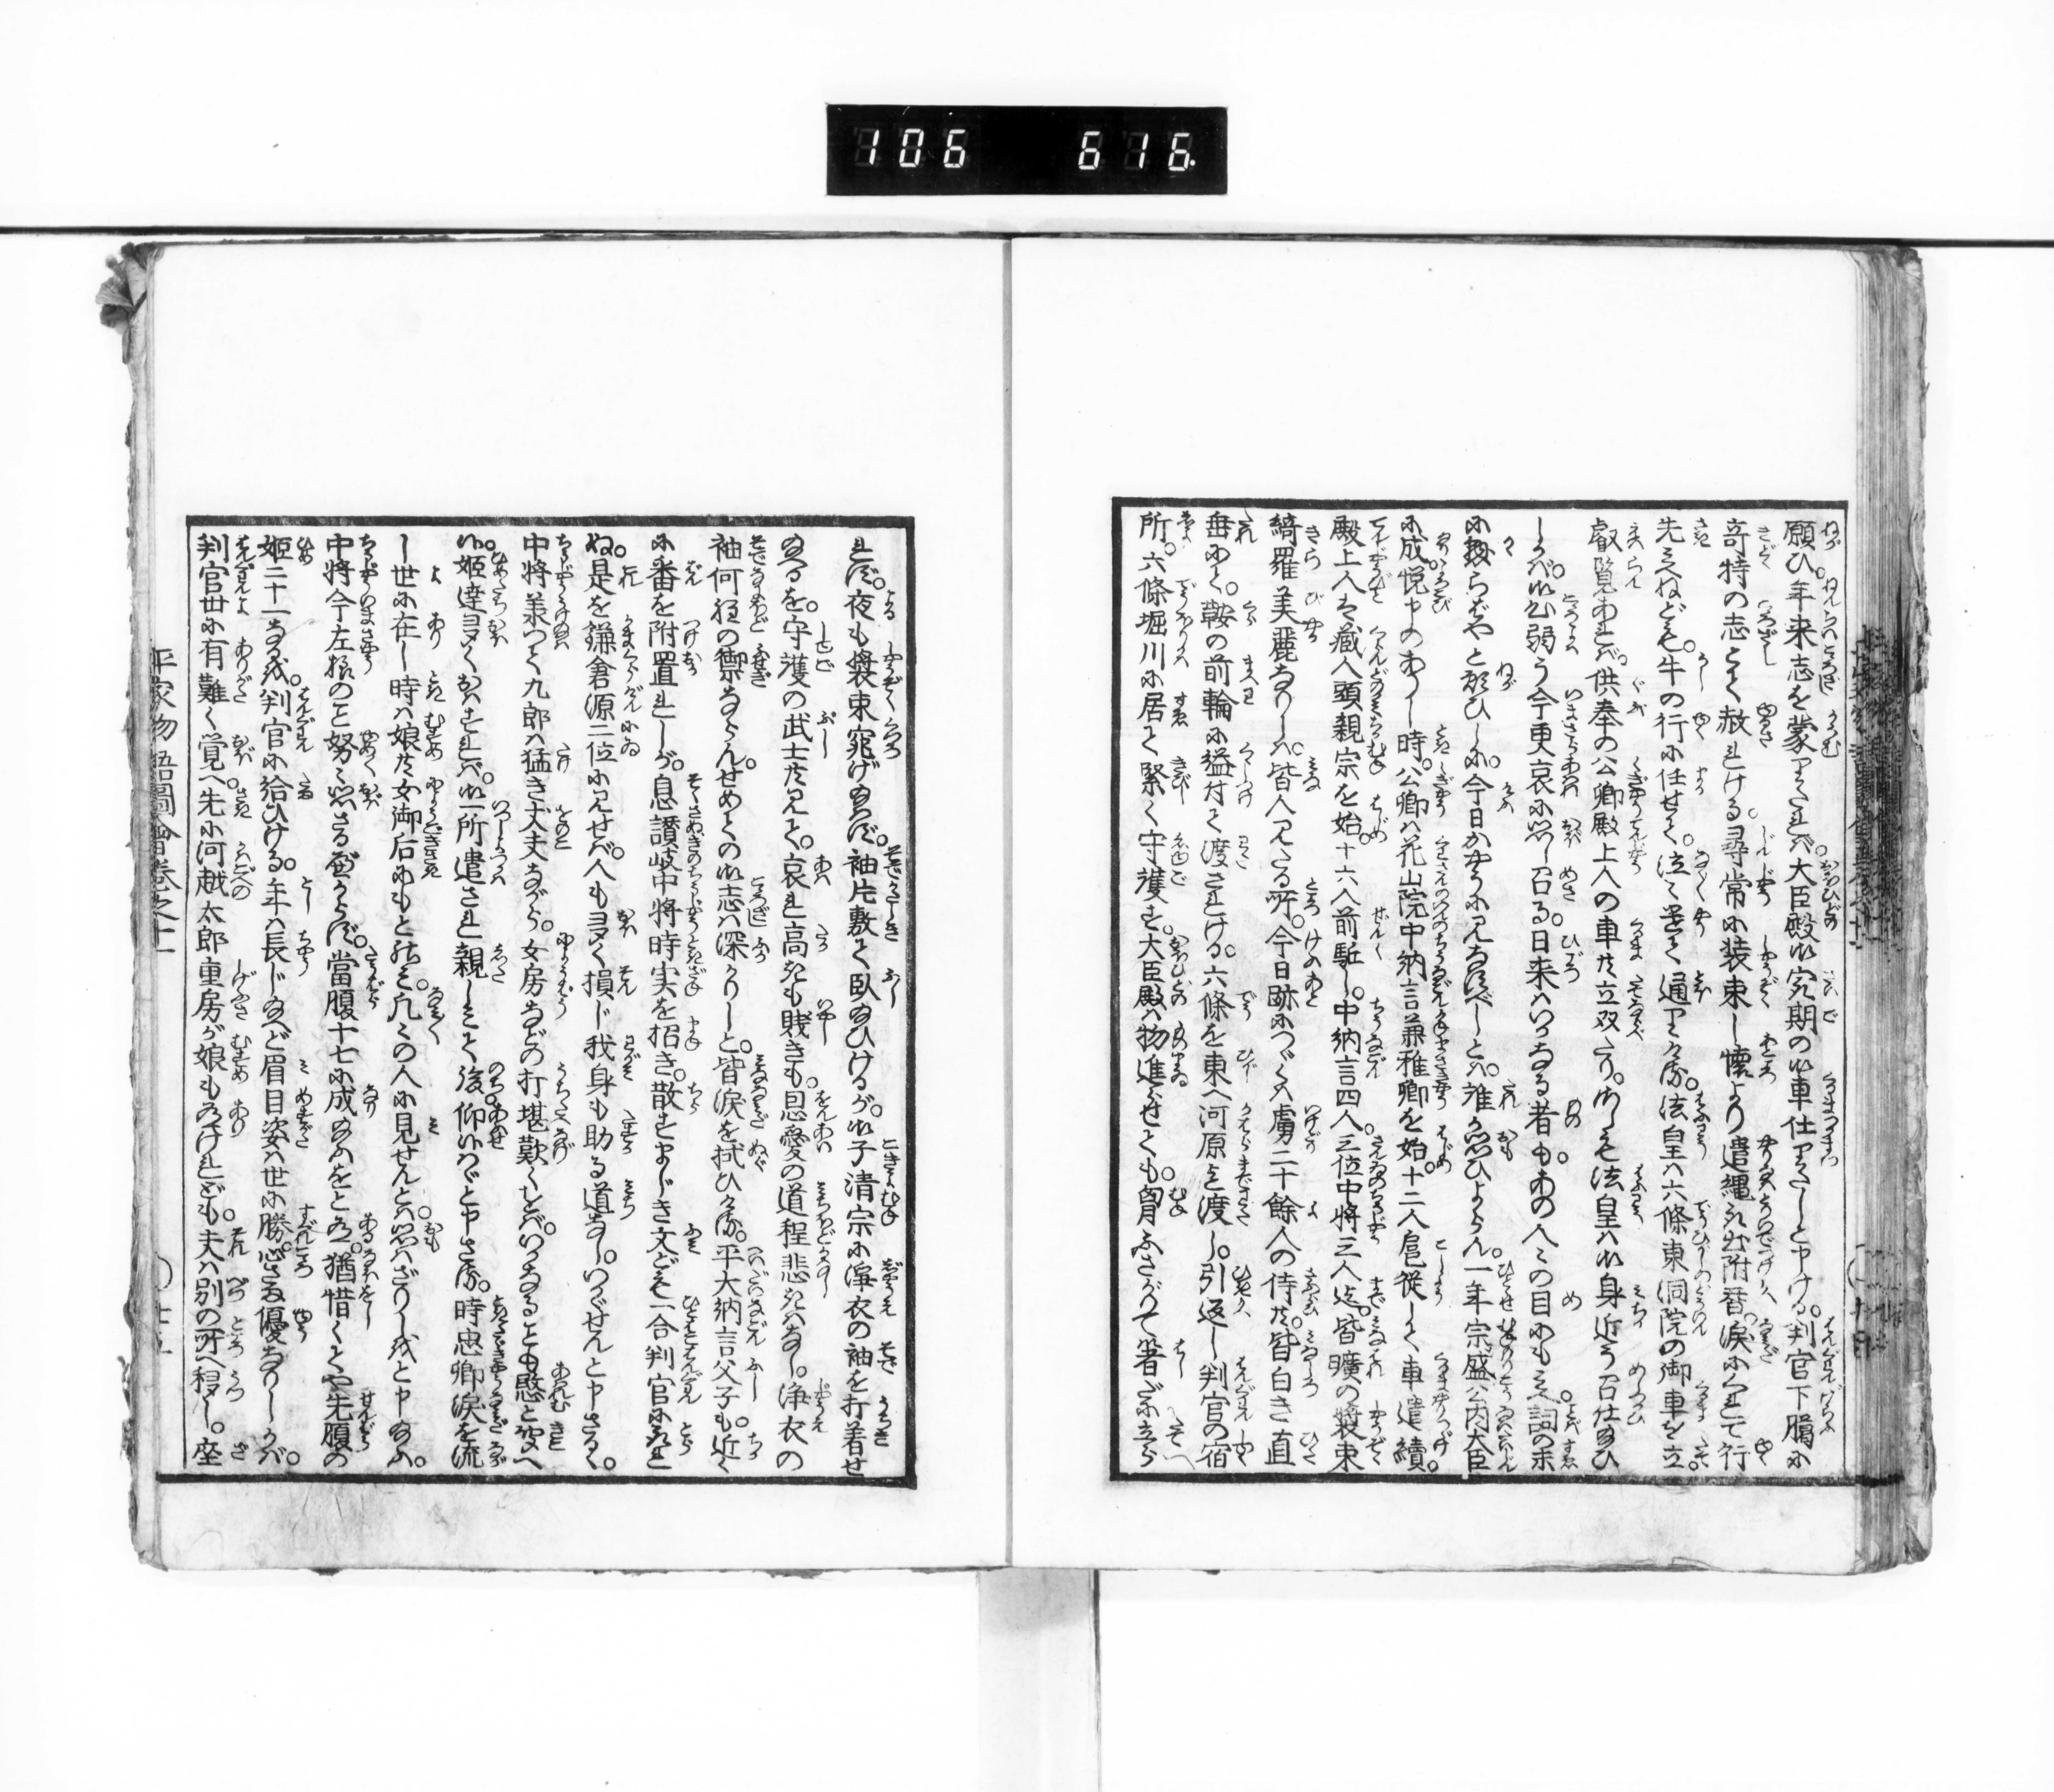 106 616.
願ひ。年来志を蒙りたれバ。大臣殿最期の御車仕りたしと申ける。判官下﨟に
奇特の志とて赦されける。尋常に装束し懐より遣縄取出附替。涙にくれて行
先見えねども。牛の行に任せて。泣〻遣て通りける。法皇ハ六條東洞院の御車を立。
叡覧あれバ。供奉の公卿殿上人の車共立双たり。法皇ハ御身近う召仕給ひ
しかバ。御心弱う今更哀に思し召る。日来ハいかなる者も。あの人〻の目にも見え。詞の末
に懸らばやと願ひしに。今日かやうに見なすべしとハ。誰か思ひよらん。一年宗盛公内大臣
に成。悦申のありし時。公卿ハ花山院中納言兼雅卿を始。十二人扈従して車遣續。
殿上人は蔵人頭親宗を始。十六人前駈し。中納言四人。三位中将三人迄。皆曠の装束
綺羅美麗なりしハ。皆人見たる所。今日跡につゞくハ虜二十餘人の侍共。皆白き直
垂にて。鞍の前輪に縊付て渡されける。六條を東へ河原迄渡し。引返し判官の宿
所。六條堀川に居て緊く守護す。大臣殿ハ物進らせても。胸ふさがりて箸だに立ら
れず。夜も装束寛げ給はず。袖片敷て臥給ひけるが。御子清宗に浄衣の袖を打着せ
給るを。守護の武士共見て。哀れ高きも賎きも。恩愛の道程悲きハなし。浄衣の
袖何程の禦ならん。せめての御志ハ深かりしと。皆涙を拭ひける。平大納言父子も。近く
に番を附置れしが。息讃岐中将時実を招き。散すまじき文ども一合判官に取れ
ぬ。是を鎌倉源二位に見せバ。人も多く損じ我身も助る道なし。いかゞせんと申さるゝ。
中将義つく九郎ハ猛き丈夫ながら。女房などの打堪歎くをバ。いかなることも愍と聞へ
候。姫達多く在すれバ。御一所遣され親しみて後。仰候へかしと申さる。時忠卿涙を流
し世に在し時ハ娘共女御后にもとこそ。凡〻の人に見せんとハ思ハざりし我と申給ふ。
中将今左様のこと努〻思さるべからず。當腹十七に成給ふをと有。猶惜くとや先腹の
姫二十一なるを。判官に給ひける。年ハ長じ給へど眉目姿ハ世に勝。心ざま優なりしかバ。
判官世に有難く覚へ。先に河越太郎重房が娘も有けれども。夫ハ別の所へ移し。座
平家物語圖會巻之十一